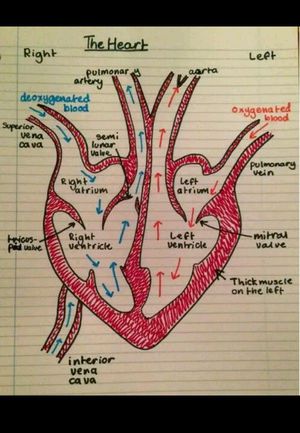 The Heart
Right
Left
pulmonary
artery
aorta
deoxygenated
blood
oxygenated
blood
Superior
vena
cava
semi
lunar
valve
Pulmonary
vein
Right
atrium
Left
atrium
tricus-
pid valve
Right
ventricle
Left
ventricle
mitral
valve
Thick muscle
on the left
interior
vena
cava